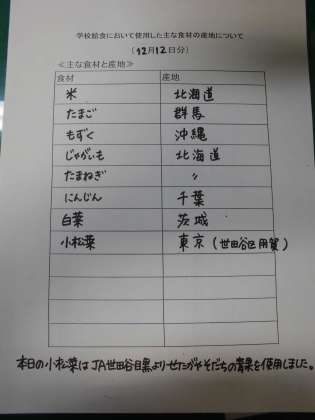 学校給食において使用した主な食材の産地について
(12月12日分)
≪主な食材と産地≫
食材 産地
米 北海道
たまご 群馬
もずく 沖縄
じゃがいも 北海道
たまねぎ 〃
にんじん 千葉
白菜 茨城
小松菜 東京(世田谷区用賀)
本日の小松菜はJA世田谷目黒よりせたがやそだちの青果を使用しました。